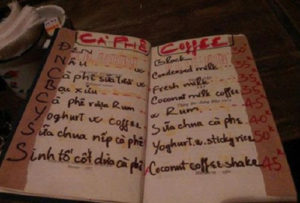 CÀ PHÊ
ĐEN
NÂU
Cà phê sữa
Bạc xỉu
Cà phê rượu Rum
Yoghurt w coffee
Sữa chua nếp cà phê
Sinh tố cốt dừa cà phê
Coffee
Black
Condensed milk 35
Fresh milk
Coconut milk coffee
w Rum 45
Sữa chua cà phê 40
Yoghurt w. sticky rice 50
Coconut coffee shake 45